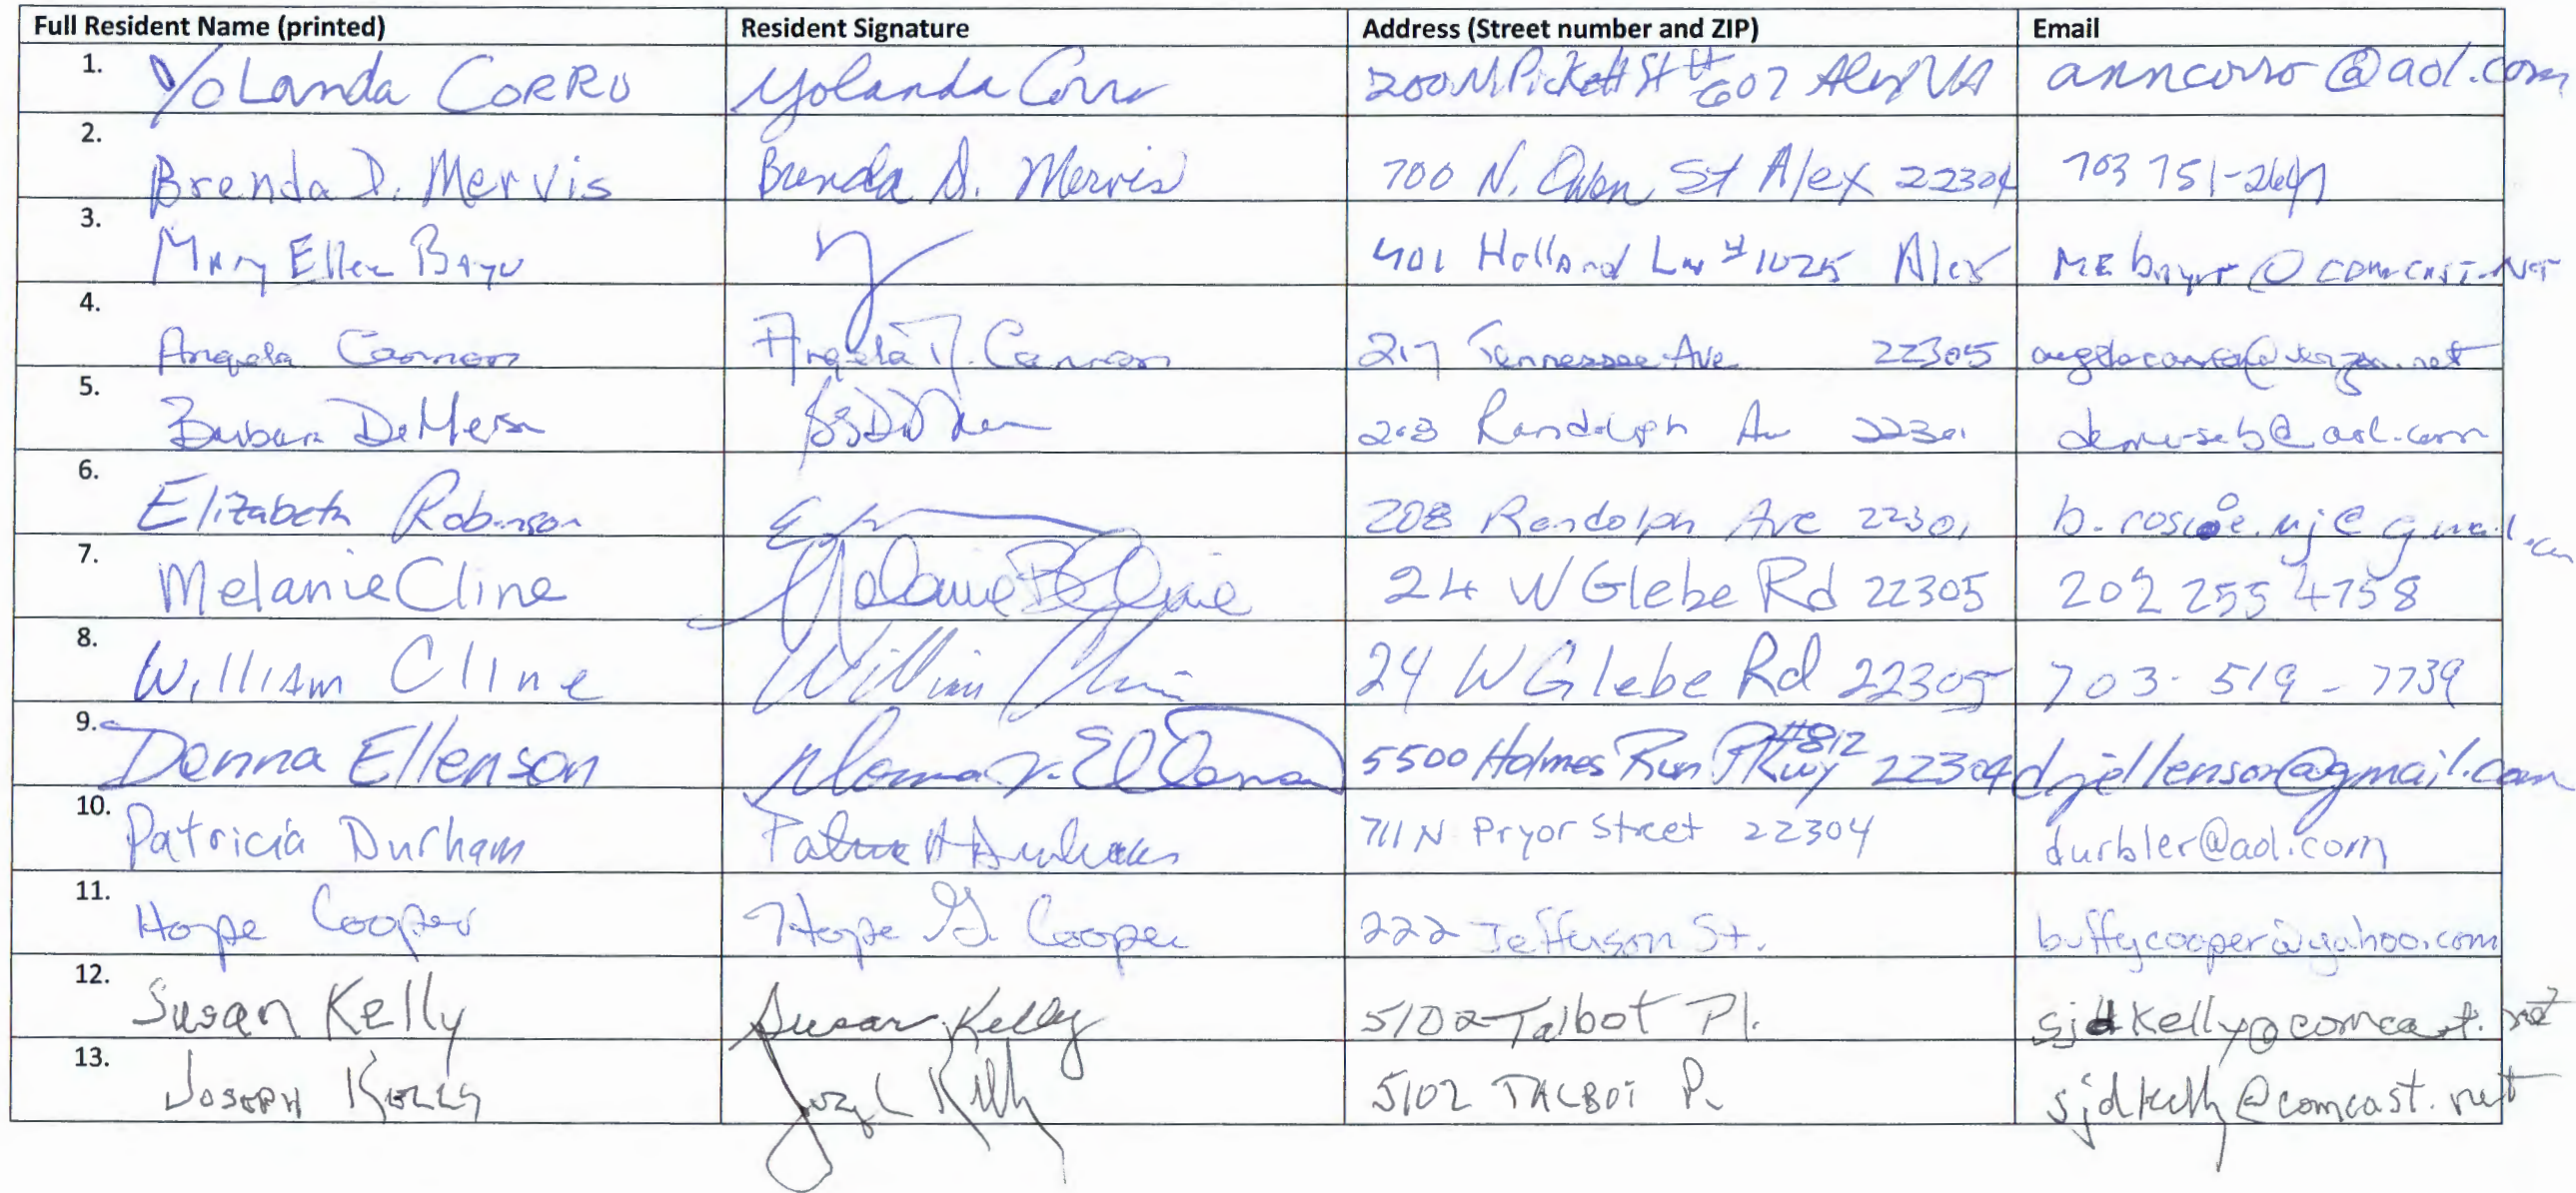 Full Resident Name (printed) Resident Signature Address (Street number and ZIP) Email
1. Yolanda CORRO Yolanda Corro 200 N. Pickett St #607 Alex VA anncorro@aol.com
2. Brenda D. Mervis Brenda D. Mervis 700 N. Owen St Alex 22304 703 751-2641
3. Mary Ellen 401 Holland Ln #1025 Alex
4. Angela Cannon Angela Cannon 217 Tennessee Ave 22305
5. Barbara Randolph 22301 @aol.com
6. Elizabeth Robinson 208 Randolph Ave 22301
7. Melanie Cline Melanie B Cline 24 W Glebe Rd 22305 202 255 4758
8. William Cline William Cline 24 W Glebe Rd 22305 703-519-7739
9. Donna Ellenson 5500 Holmes Run Pkwy #812 22304 drjellenson@gmail.com
10. Patricia Durham 711 N Pryor Street 22304 durbler@aol.com
11. Hope Cooper Hope G. Cooper 222 Jefferson St. buffycooper@yahoo.com
12. Susan Kelly Susan Kelly 5102 Talbot Pl. sjdkelly@comcast.net
13. JOSEPH KELLY Joseph Kelly 5102 TALBOT PL sjdkelly@comcast.net